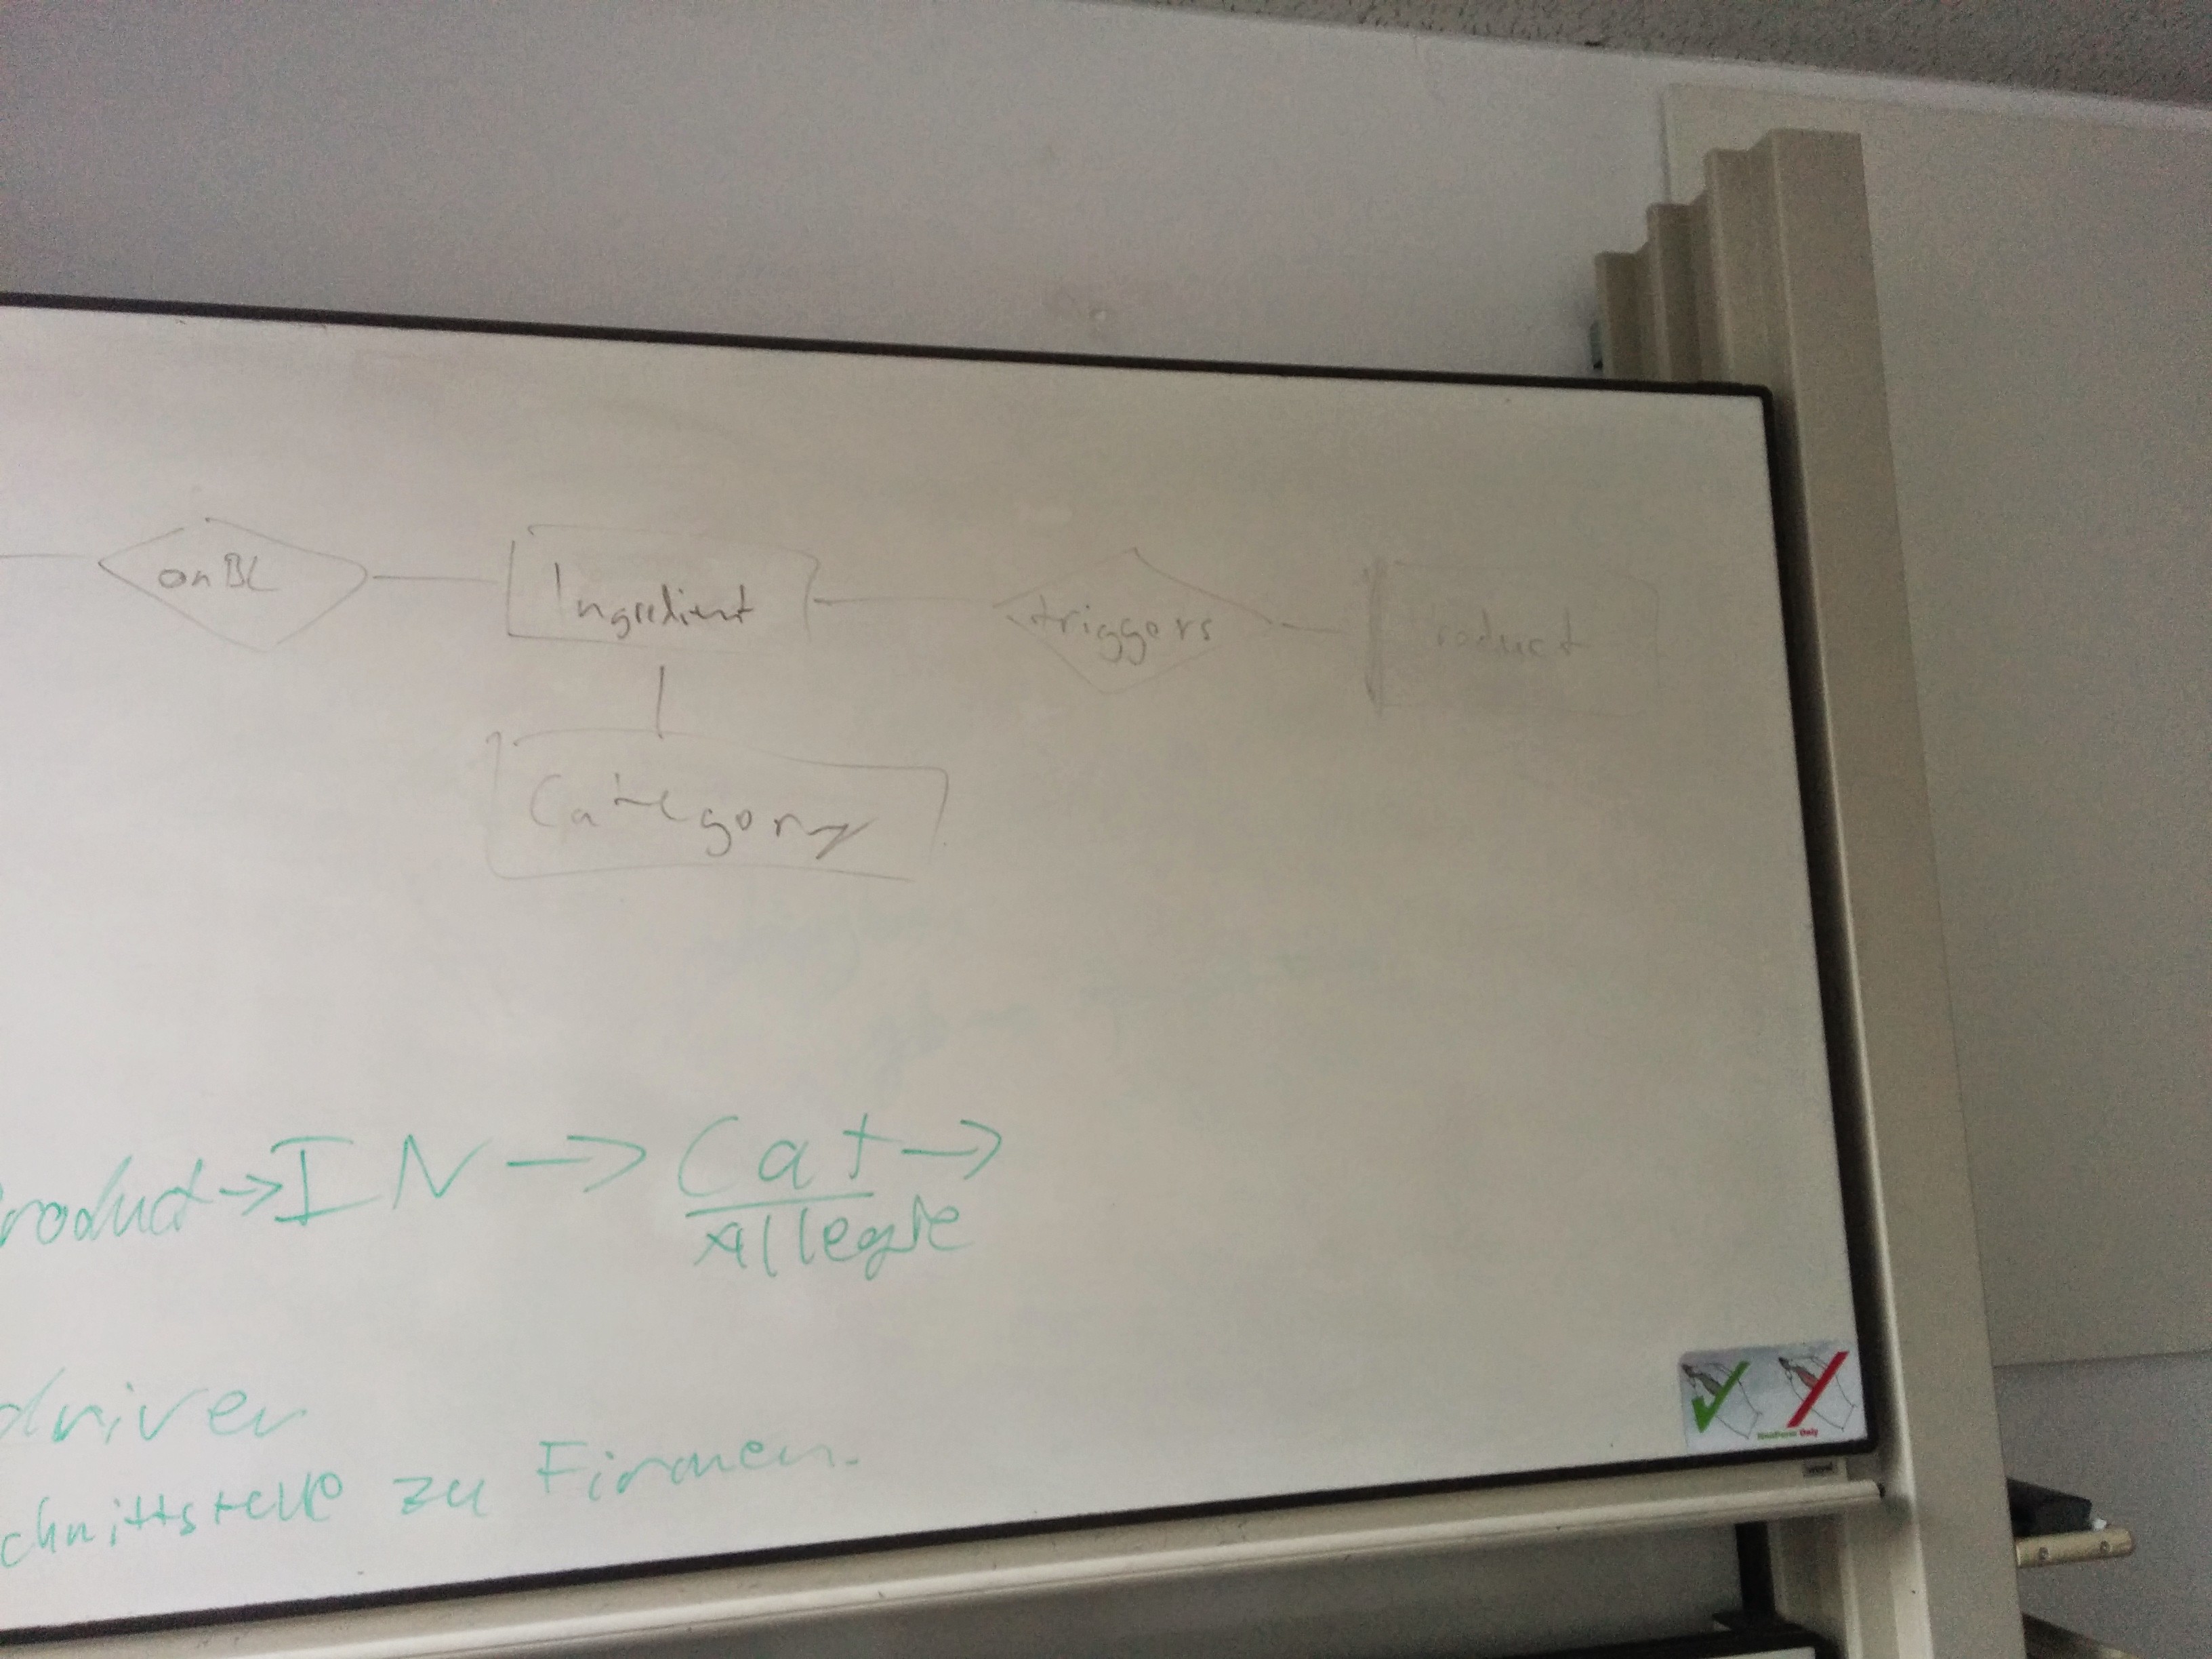 onBL Ingredient triggers Product
Category
roduct → IN → Cat →
Allegie
driver
chnittstelle zu Firmen.
Only